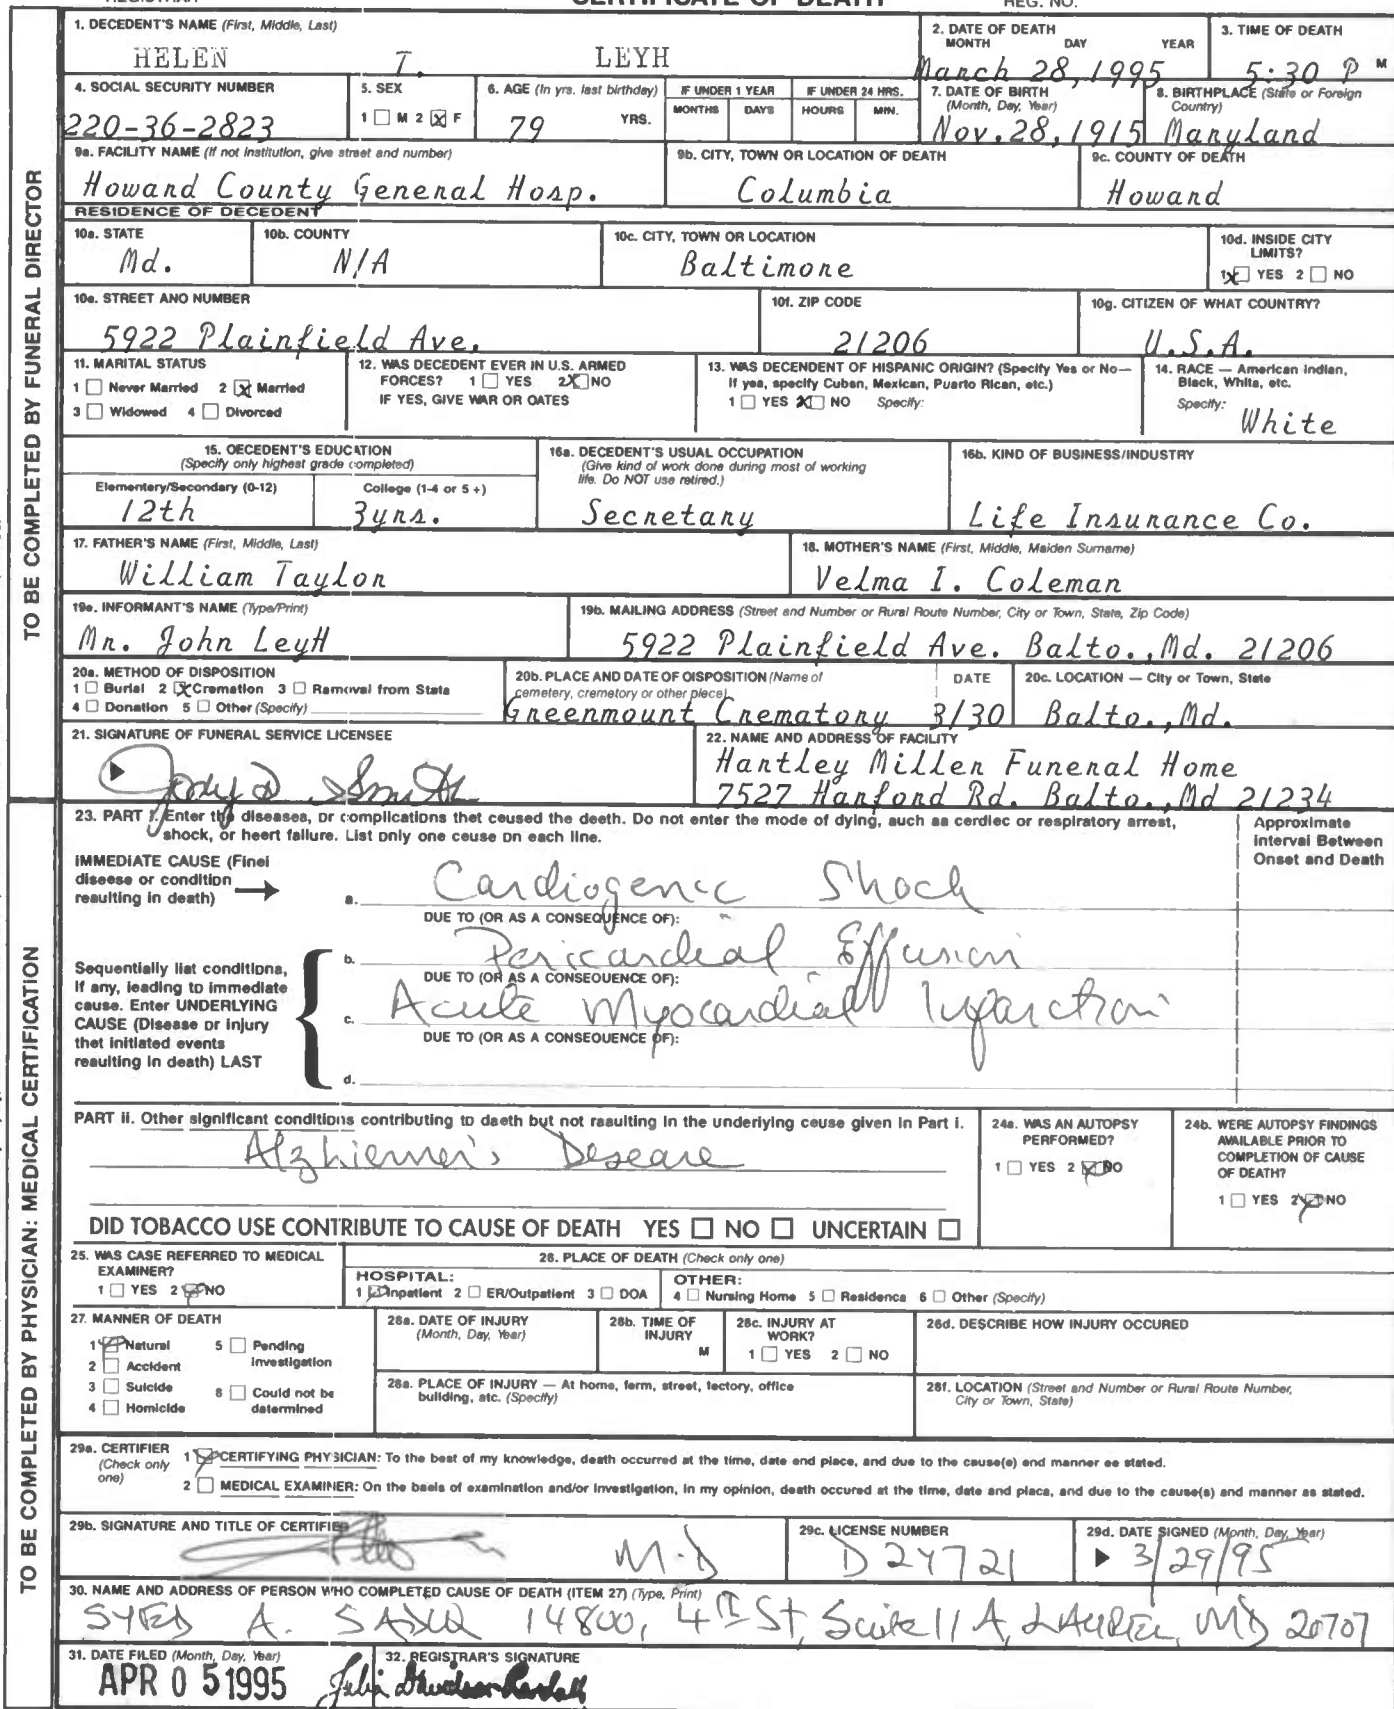 CERTIFICATE OF DEATH
REG. NO.
1. DECEDENT'S NAME (First, Middle, Last)
HELEN T. LEYH
2. DATE OF DEATH
MONTH DAY YEAR
March 28, 1995
3. TIME OF DEATH
5:30 P M
4. SOCIAL SECURITY NUMBER
220-36-2823
5. SEX
1 M 2 X F
6. AGE (In yrs. last birthday)
79 YRS.
IF UNDER 1 YEAR
MONTHS DAYS
IF UNDER 24 HRS.
HOURS MIN.
7. DATE OF BIRTH
(Month, Day, Year)
Nov. 28, 1915
8. BIRTHPLACE (State or Foreign
Country)
Maryland
9a. FACILITY NAME (If not institution, give street and number)
Howard County General Hosp.
9b. CITY, TOWN OR LOCATION OF DEATH
Columbia
9c. COUNTY OF DEATH
Howard
RESIDENCE OF DECEDENT
10a. STATE
Md.
10b. COUNTY
N/A
10c. CITY, TOWN OR LOCATION
Baltimore
10d. INSIDE CITY
LIMITS?
1 X YES 2 NO
10e. STREET AND NUMBER
5922 Plainfield Ave.
10f. ZIP CODE
21206
10g. CITIZEN OF WHAT COUNTRY?
U.S.A.
11. MARITAL STATUS
1 Never Married 2 X Married
3 Widowed 4 Divorced
12. WAS DECEDENT EVER IN U.S. ARMED
FORCES? 1 YES 2 X NO
IF YES, GIVE WAR OR DATES
13. WAS DECENDENT OF HISPANIC ORIGIN? (Specify Yes or No—
If yes, specify Cuban, Mexican, Puerto Rican, etc.)
1 YES X NO Specify:
14. RACE — American Indian,
Black, White, etc.
Specify:
White
15. DECEDENT'S EDUCATION
(Specify only highest grade completed)
Elementary/Secondary (0-12)
12th
College (1-4 or 5 +)
3yrs.
16a. DECEDENT'S USUAL OCCUPATION
(Give kind of work done during most of working
life. Do NOT use retired.)
Secretary
16b. KIND OF BUSINESS/INDUSTRY
Life Insurance Co.
17. FATHER'S NAME (First, Middle, Last)
William Taylor
18. MOTHER'S NAME (First, Middle, Maiden Surname)
Velma I. Coleman
19a. INFORMANT'S NAME (Type/Print)
Mr. John LeyH
19b. MAILING ADDRESS (Street and Number or Rural Route Number, City or Town, State, Zip Code)
5922 Plainfield Ave. Balto., Md. 21206
20a. METHOD OF DISPOSITION
1 Burial 2 X Cremation 3 Removal from State
4 Donation 5 Other (Specify)
20b. PLACE AND DATE OF DISPOSITION (Name of
cemetery, crematory or other place)
DATE
Greenmount Crematory 3/30
20c. LOCATION — City or Town, State
Balto., Md.
21. SIGNATURE OF FUNERAL SERVICE LICENSEE
Smith
22. NAME AND ADDRESS OF FACILITY
Hartley Miller Funeral Home
7527 Harford Rd. Balto., Md 21234
TO BE COMPLETED BY FUNERAL DIRECTOR
23. PART I. Enter the diseases, or complications that caused the death. Do not enter the mode of dying, such as cardiac or respiratory arrest,
shock, or heart failure. List only one cause on each line.
Approximate
Interval Between
Onset and Death
IMMEDIATE CAUSE (Final
disease or condition
resulting in death)
a. Cardiogenic Shock
DUE TO (OR AS A CONSEQUENCE OF):
b. Pericardial Effusion
DUE TO (OR AS A CONSEQUENCE OF):
c. Acute Myocardial Infarction
DUE TO (OR AS A CONSEQUENCE OF):
d.
Sequentially list conditions,
if any, leading to immediate
cause. Enter UNDERLYING
CAUSE (Disease or injury
that initiated events
resulting in death) LAST
PART II. Other significant conditions contributing to death but not resulting in the underlying cause given in Part I.
Alzhiemer's Desease
24a. WAS AN AUTOPSY
PERFORMED?
1 YES 2 X NO
24b. WERE AUTOPSY FINDINGS
AVAILABLE PRIOR TO
COMPLETION OF CAUSE
OF DEATH?
1 YES 2 X NO
DID TOBACCO USE CONTRIBUTE TO CAUSE OF DEATH YES NO UNCERTAIN
25. WAS CASE REFERRED TO MEDICAL
EXAMINER?
1 YES 2 NO
26. PLACE OF DEATH (Check only one)
HOSPITAL:
1 Inpatient 2 ER/Outpatient 3 DOA
OTHER:
4 Nursing Home 5 Residence 6 Other (Specify)
27. MANNER OF DEATH
1 Natural 5 Pending
Investigation
2 Accident
3 Suicide 6 Could not be
determined
4 Homicide
28a. DATE OF INJURY
(Month, Day, Year)
28b. TIME OF
INJURY
M
28c. INJURY AT
WORK?
1 YES 2 NO
28d. DESCRIBE HOW INJURY OCCURED
28e. PLACE OF INJURY — At home, farm, street, factory, office
building, etc. (Specify)
28f. LOCATION (Street and Number or Rural Route Number,
City or Town, State)
29a. CERTIFIER
(Check only
one)
1 CERTIFYING PHYSICIAN: To the best of my knowledge, death occurred at the time, date and place, and due to the cause(s) and manner as stated.
2 MEDICAL EXAMINER: On the basis of examination and/or investigation, in my opinion, death occured at the time, date and place, and due to the cause(s) and manner as stated.
29b. SIGNATURE AND TITLE OF CERTIFIER
M.D
29c. LICENSE NUMBER
D 24721
29d. DATE SIGNED (Month, Day, Year)
3/29/95
30. NAME AND ADDRESS OF PERSON WHO COMPLETED CAUSE OF DEATH (ITEM 27) (Type, Print)
SYED A. SADIQ 14800, 4th St, Suite 11 A, LAUREL, MD 20707
31. DATE FILED (Month, Day, Year)
APR 05 1995
32. REGISTRAR'S SIGNATURE
Julia Davidson-Randall
TO BE COMPLETED BY PHYSICIAN: MEDICAL CERTIFICATION